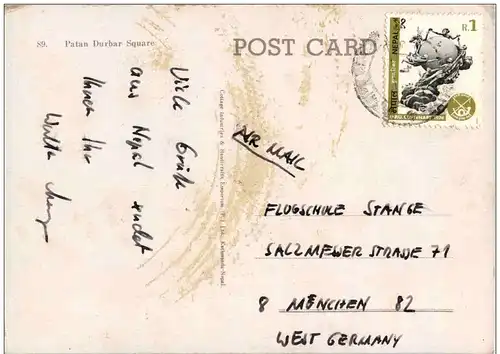 89. Patan Durbar Square
POST CARD
NEPAL
R.1
Viele Grüße
aus Nepal sendet
Ihnen Ihr
AIR MAIL
Cottage Industries & Handicrafts Emporium (P.) Ltd., Kathmandu-Nepal.
FLUGSCHULE STANGE
SALZMEWER STRADE 71
8 MÜNCHEN 82
WEST GERMANY